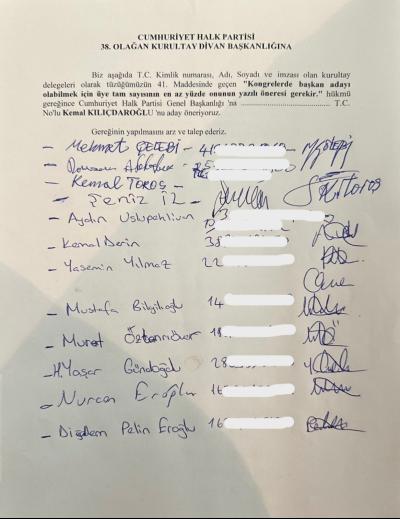 CUMHURİYET HALK PARTİSİ
38. OLAĞAN KURULTAY DİVAN BAŞKANLIĞINA
Biz aşağıda T.C. Kimlik numarası, Adı, Soyadı ve imzası olan kurultay
delegeleri olarak tüzüğümüzün 41. Maddesinde geçen "Kongrelerde başkan adayı
olabilmek için üye tam sayısının en az yüzde onunun yazılı önerisi gerekir." hükmü
gereğince Cumhuriyet Halk Partisi Genel Başkanlığı 'na .................................. T.C.
No'lu Kemal KILIÇDAROĞLU 'nu aday öneriyoruz.
Gereğinin yapılmasını arz ve talep ederiz.
– Mehmet ÇELEBİ –
– Kemal TOROS –
– Şeniz İZ
– Aydın
– Kemal Derin 38
– Yasemin Yılmaz 22
– Mustafa Bilgiloğlu 14
– Murat 18
– H. Yaşar Gündoğdu 28
– Nurcan Eroğlu 16
– Diğdem Pelin Eroğlu 16